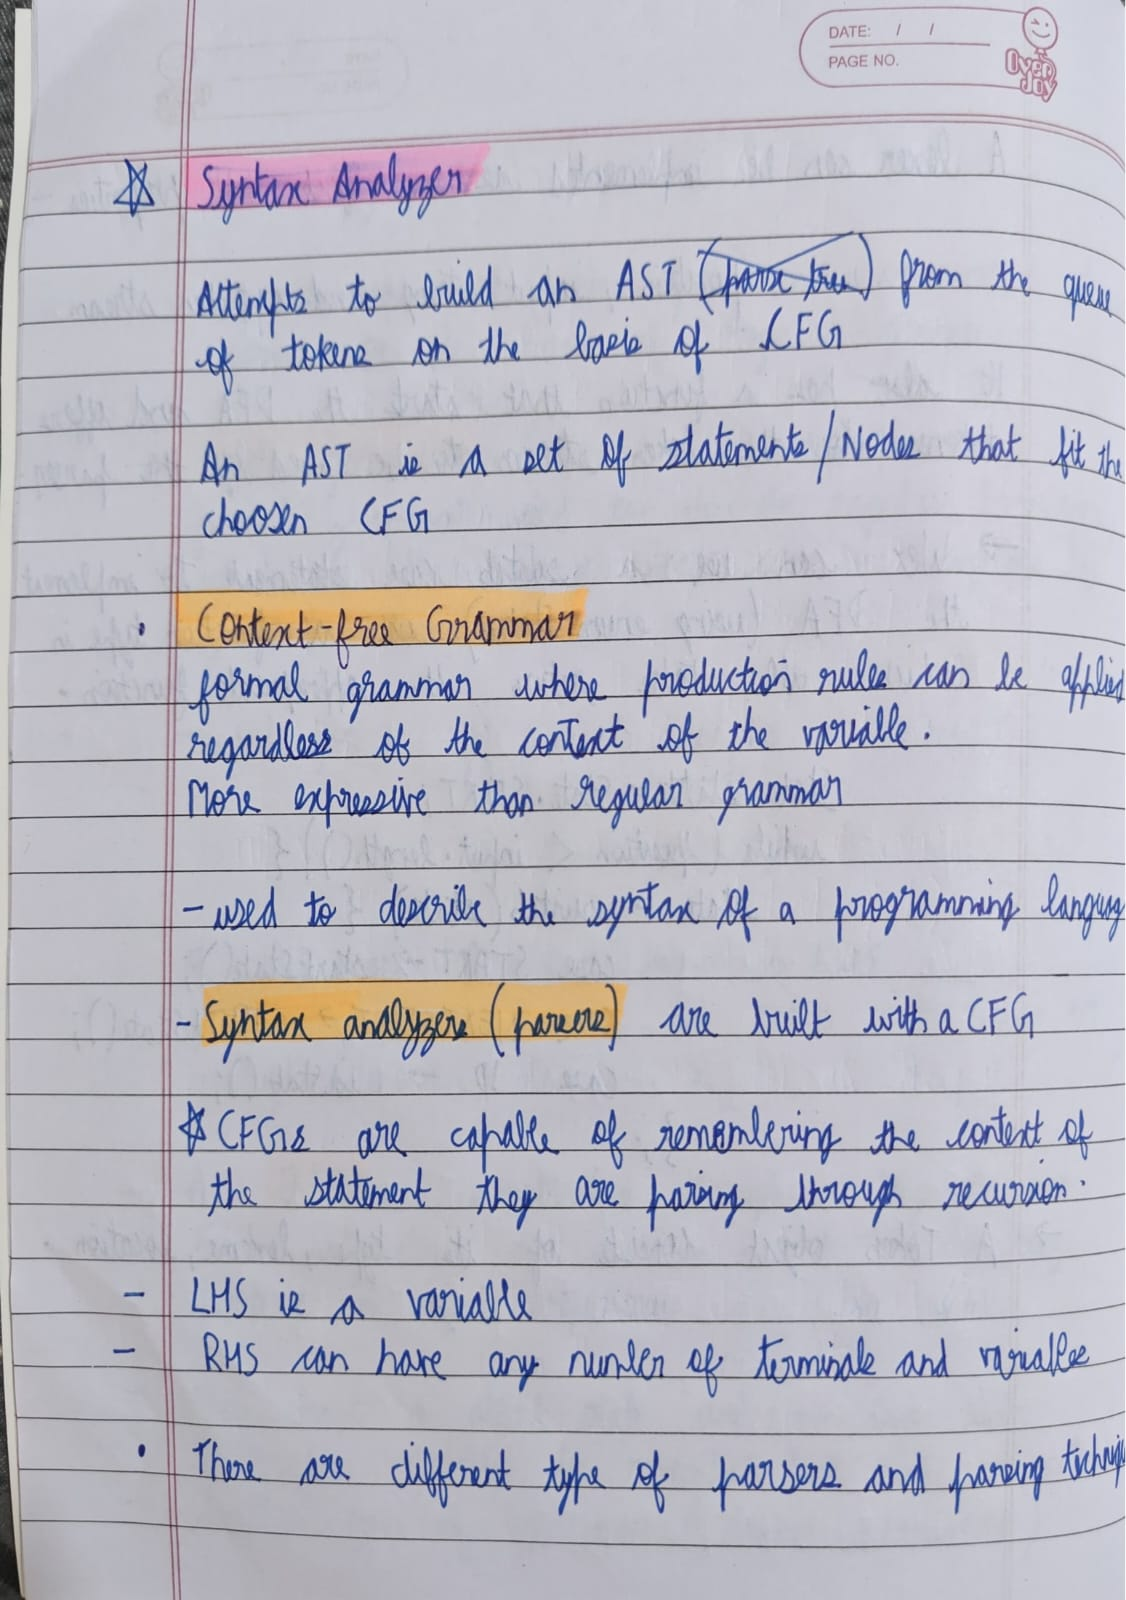 DATE: / /
PAGE NO.
Over Joy
☆ Syntax Analyzer
Attempts to build an AST (parse tree) from the queue
of tokens on the basis of CFG
An AST is a set of statements/Nodes that fit the
choosen CFG
• Context-free Grammar
formal grammar where production rules can be applied
regardless of the context of the variable.
More expressive than regular grammar
- used to describe the syntax of a programming languag
- Syntax analyzers (parsers) are built with a CFG
☆ CFGs are capable of remembering the context of
the statement they are parsing through recursion.
- LHS is a variable
- RHS can have any number of terminals and variables
• There are different type of parsers and parsing techniq